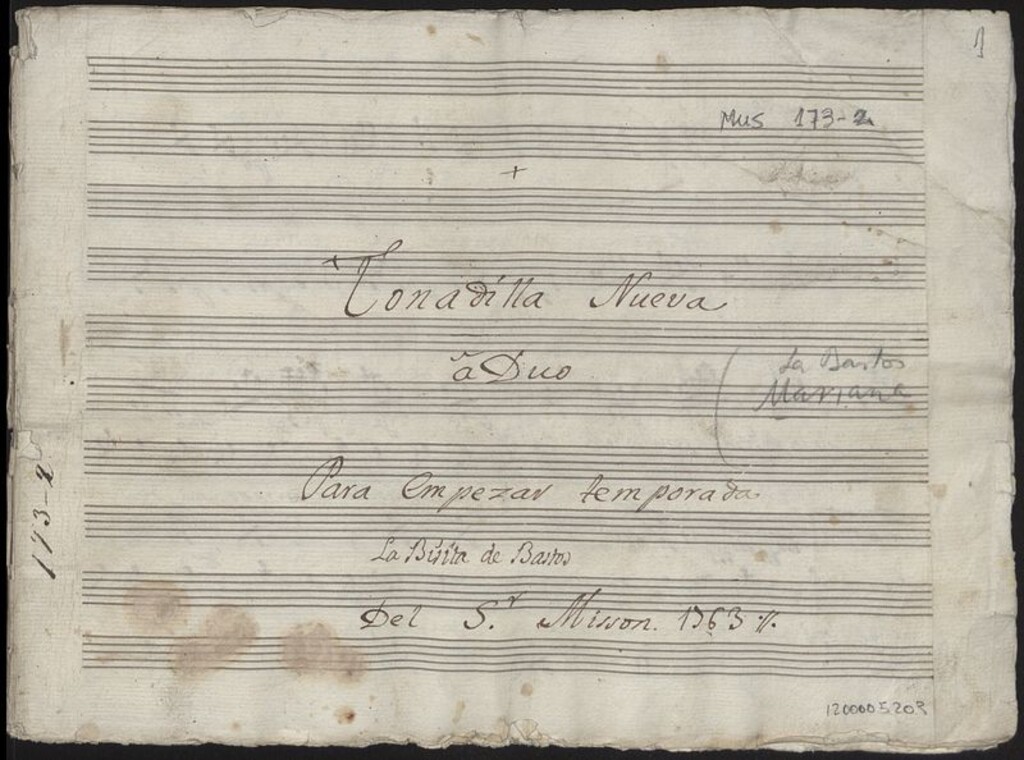 1
Mus 173-2
+
Tonadilla Nueva
à Duo
La Bastos
Mariana
Para empezar temporada
La Bisita de Bastos
Del S.r Misson. 1763 //.
173-2
1200005202